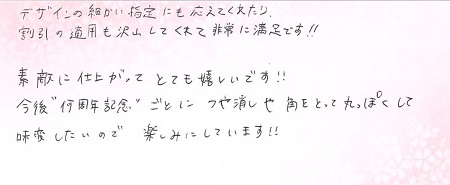 デザインの細かい指定にも応えてくれたり、
割引の適用も沢山してくれて非常に満足です!!
素敵に仕上がって とても嬉しいです!!
今後"何周年記念"ごとに つや消しや 角をとって 丸っぽくして
味変したいので 楽しみにしています!!